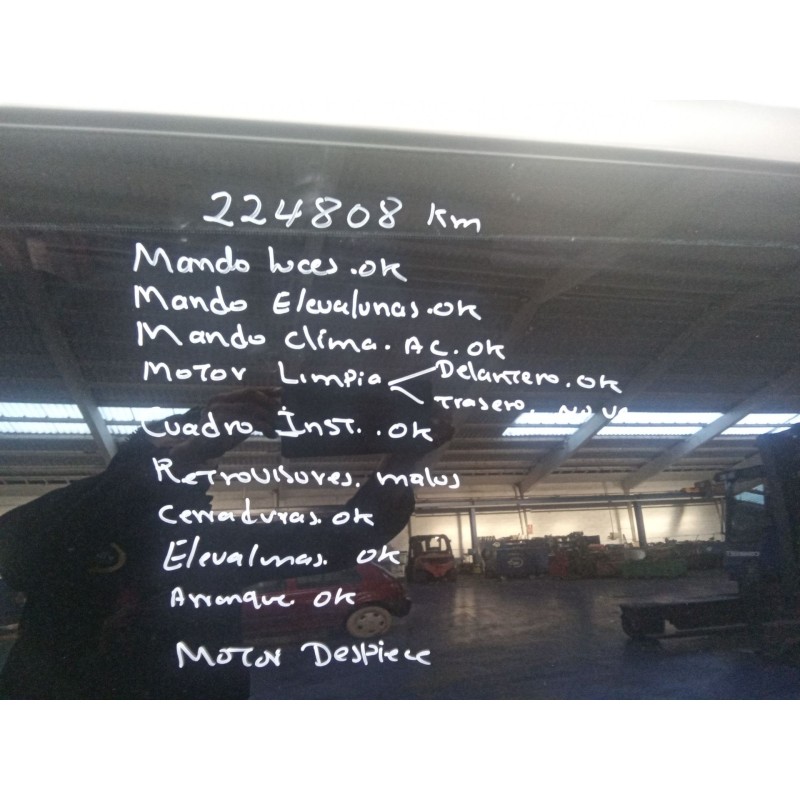 224808 Km
Mando luces.OK
Mando Elevalunas.OK
Mando clima. AC. OK
MOTOR Limpia Delantero. OK
Trasero. no va
Cuadro Inst. . OK
Retrovisores. malos
Cerraduras. OK
Elevalunas. OK
Arranque OK
MOTOR Despiece